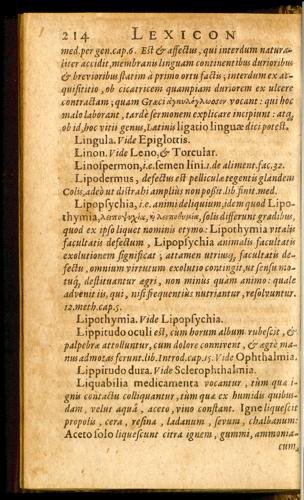 214 LEXICON
med.per gen.cap.6. Est & affectus, qui interdum natura-
liter accidit, membranis linguam continentibus durioribus
& brevioribus statim à primo ortu factis; interdum ex ac-
quisititio, ob cicatricem quampiam duriorem ex ulcere
contractam; quam Græci ἀγκυλόγλωσσον vocant: qui hoc
malo laborant, tardè sermonem explicare incipiunt: atq,
ob id, hoc vitii genus, Latinis ligatio linguæ dici potest.
Lingula. Vide Epiglottis.
Linon. Vide Leno, & Torcular.
Linospermon, i.e. semen lini. 1. de aliment. fac. 32.
Lipodermus, defectus est pelliculæ tegentis glandem
Colis, adeò ut distrahi ampliùs non possit. lib. finit. med.
Lipopsychia, i.e. animi deliquium, idem quod Lipo-
thymia, λειποψυχία, ἢ λειποθυμία, solis differunt gradibus,
quod ex ipso liquet nominis etymo: Lipothymia vitalis
facultatis defectum, Lipopsychia animalis facultatis
exolutionem significat; attamen utriusq, facultatis de-
fectu, omnium virtutum exolutio contingit, ut sensu mo-
tuq, destituantur ægri, non minus quam animo: quale
advenit iis, qui, nisi frequentiùs nutriantur, resolvuntur.
12. meth. cap. 5.
Lipothymia. Vide Lipopsychia.
Lippitudo oculi est, cùm horum album rubescit, &
palpebræ attolluntur, cum dolore connivent, & ægrè ma-
nus admotas ferunt. lib. Introd. cap. 15. Vide Ophthalmia.
Lippitudo dura. Vide Sclerophthalmia.
Liquabilia medicamenta vocantur, tùm quæ i-
gnis contactu colliquantur, tùm quæ ex humidis quibus-
dam, velut aquâ, aceto, vino constant. Igne liquescit
propolis, cera, resina, ladanum, sevum, chalbanum:
Aceto solo liquescunt citra ignem, gummi, ammonia-
cum,